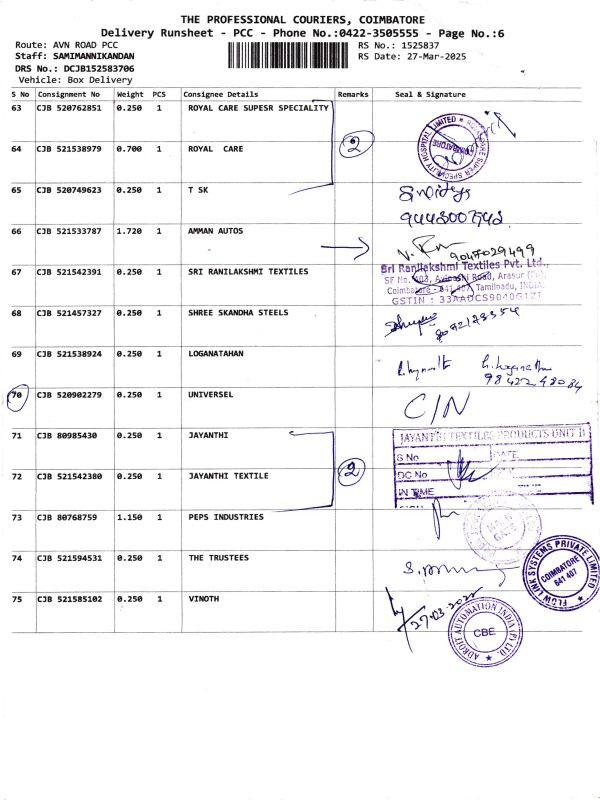 THE PROFESSIONAL COURIERS, COIMBATORE
Delivery Runsheet - PCC - Phone No.:0422-3505555 - Page No.:6
Route: AVN ROAD PCC
RS No.: 1525837
Staff: SAMIMANNIKANDAN
RS Date: 27-Mar-2025
DRS No.: DCJB152583706
Vehicle: Box Delivery
S No Consignment No Weight PCS Consignee Details Remarks Seal & Signature
63 CJB 520762851 0.250 1 ROYAL CARE SUPESR SPECIALITY
2
64 CJB 521538979 0.700 1 ROYAL CARE
65 CJB 520749623 0.250 1 T SK
66 CJB 521533787 1.720 1 AMMAN AUTOS
9047029499
67 CJB 521542391 0.250 1 SRI RANILAKSHMI TEXTILES
Sri Ranilakshmi Textiles Pvt. Ltd.,
SF No. 403, Avinashi Road, Arasur (Po),
Coimbatore - 641 407, Tamilnadu, INDIA.
GSTIN : 33AADCS9040G1ZT
68 CJB 521457327 0.250 1 SHREE SKANDHA STEELS
69 CJB 521538924 0.250 1 LOGANATAHAN
98422 48084
70 CJB 520902279 0.250 1 UNIVERSEL
C/N
71 CJB 80985430 0.250 1 JAYANTHI
JAYANTHI TEXTILES PRODUCTS UNIT II
S No DATE
DC No
IN TIME
2
72 CJB 521542380 0.250 1 JAYANTHI TEXTILE
73 CJB 80768759 1.150 1 PEPS INDUSTRIES
74 CJB 521594531 0.250 1 THE TRUSTEES
FLOW LINK SYSTEMS PRIVATE LIMITED
COIMBATORE
641 407
75 CJB 521585102 0.250 1 VINOTH
ADROIT AUTOMATION INDIA (P) LTD.
CBE